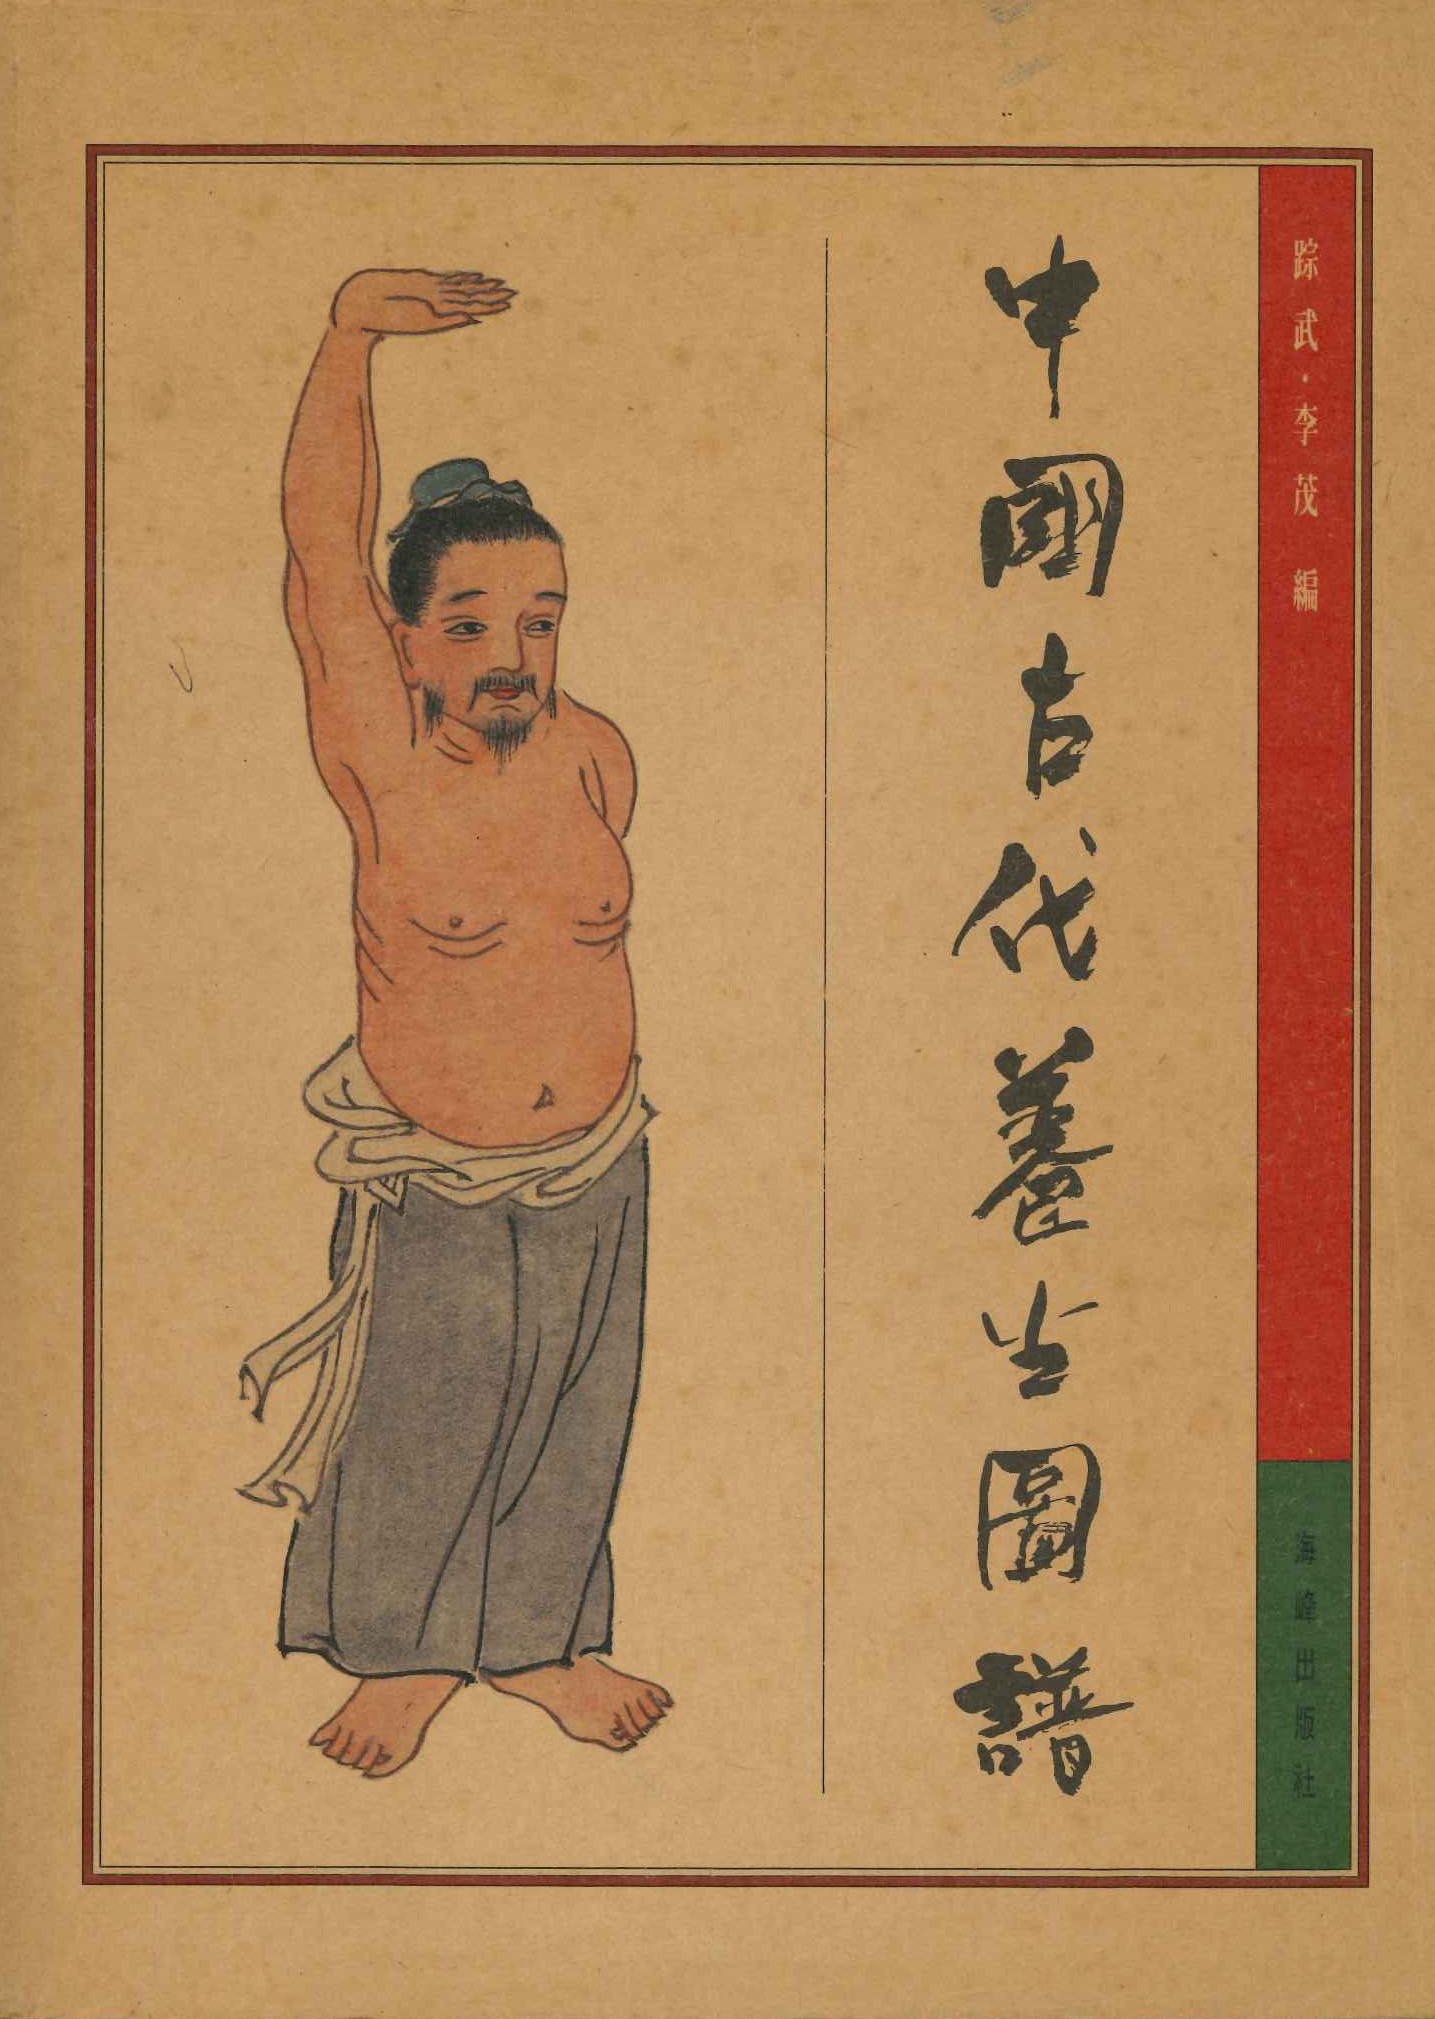 踪武·李茂 編
中國古代養生圖譜
海峰出版社